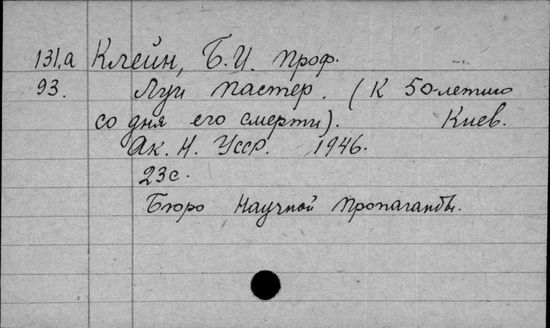 131,а Клейн, Б.И. проф.
93. Луи Пастер. (К 50-летию
со дня его смерти). Киев.
Ак. Н. Усср. 1946.
23с.
Бюро Научной Пропаганды.